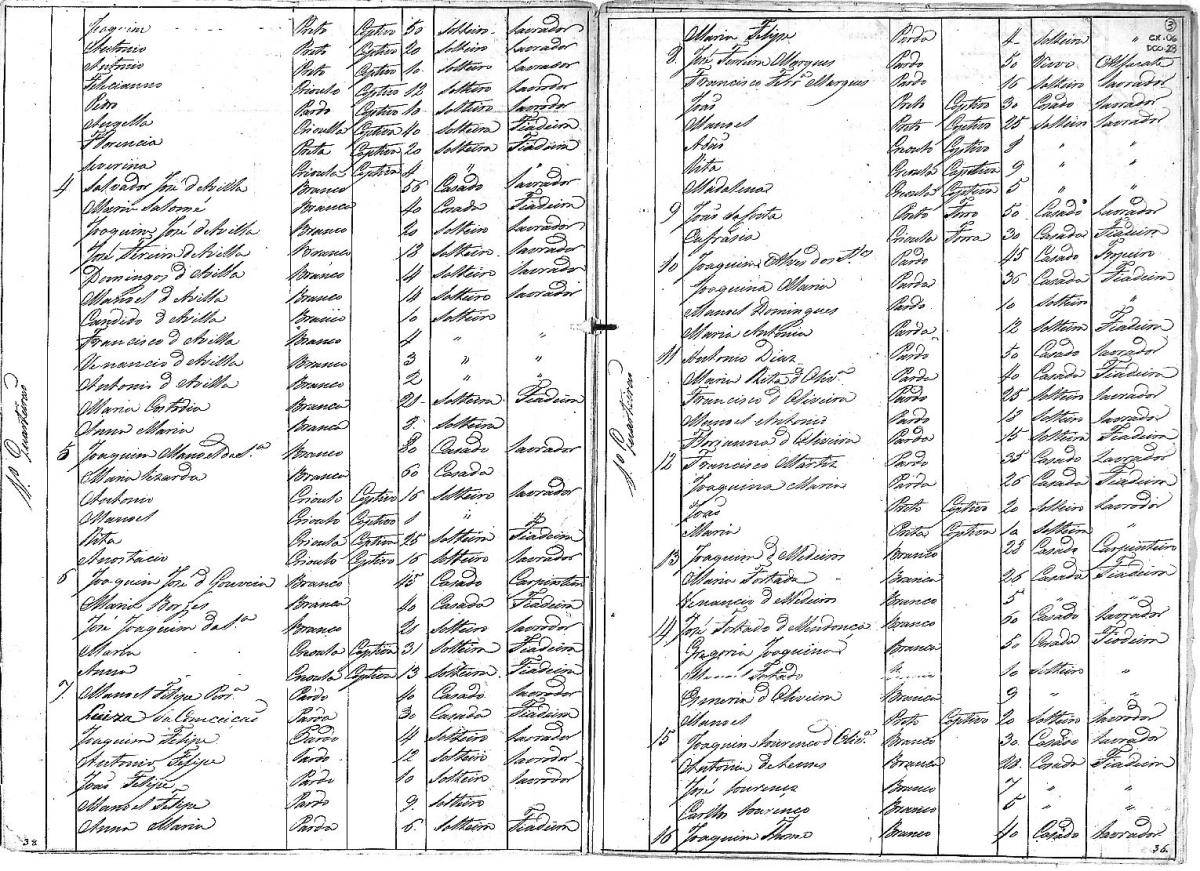 1.o Quarteirão
Joaquim Preto Captivo 50 Solteiro Lavrador
Antonio Preto Captivo 20 Solteiro Lavrador
Antonio Preto Captivo 10 Solteiro Lavrador
Felicianno Crioulo Captivo 12 Solteiro Lavrador
Pedro Pardo Captivo 10 Solteiro Lavrador
Angella Crioulla Captiva 40 Solteira Fiadeira
Florencia Preta Captiva 20 Solteira Fiadeira
Severina Crioula Captiva 4 " "
4 Salvador José d'Avilla Branco 56 Casado Lavrador
Maria Salomé Branca 40 Casada Fiadeira
Joaquim José d'Avilla Branco 20 Solteiro Lavrador
José d'Avilla Branco 18 Solteiro Lavrador
Domingos d'Avilla Branco 14 Solteiro Lavrador
Manoel d'Avilla Branco 14 Solteiro Lavrador
Candido d'Avilla Branco 10 Solteiro
Francisco d'Avilla Branco 4 " "
Venancio d'Avilla Branco 3 " "
Antonio d'Avilla Branco 2 " "
Maria Custodia Branca 21 Solteira Fiadeira
Anna Maria Branca 2 Solteira
5 Joaquim Manoel da S.a Branco 80 Casado Lavrador
Maria Lizarda Branca 60 Casada
Antonio Crioulo Captivo 16 Solteiro Lavrador
Manoel Crioulo Captivo 1 " "
Rita Crioula Captiva 25 Solteira Fiadeira
Anastacio Crioulo Captivo 16 Solteiro Lavrador
6 Joaquim José d Gouveia Branco 45 Casado Carpinteiro
Maria Borges Branca 40 Casada Fiadeira
José Joaquim da S.a Branco 21 Solteiro Lavrador
Maria Crioula Captiva 31 Solteira Fiadeira
Anna Crioula Captiva 13 Solteira Fiadeira
7 Manoel Felipe Pardo 40 Casado Lavrador
Luiza da Conceicão Parda 30 Casada Fiadeira
Joaquim Felipe Pardo 14 Solteiro Lavrador
Antonio Felipe Pardo 12 Solteiro Lavrador
João Felipe Pardo 10 Solteiro Lavrador
Manoel Felipe Pardo 9 Solteiro
Anna Maria Parda 6 Solteira Fiadeira
38
3
CX-06
DCO-28
1.o Quarteirão
Maria Felipe Parda 4 Solteira "
8 José Marques Pardo 50 Viuvo
Francisco Marques Pardo 16 Solteiro Lavrador
João Preto Captivo 30 Casado Lavrador
Manoel Preto Captivo 25 Solteiro Lavrador
Adão Crioulo Captivo 8 " "
Rita Crioula Captiva 9 " "
Madalena Crioula Captiva 5 " "
9 João da Costa Preto Forro 50 Casado Lavrador
Eufrásia Crioula Forra 30 Casada Fiadeira
10 Joaquim Alves dos Pardo 45 Casado Tropeiro
Joaquina Maria Parda 36 Casada Fiadeira
Manoel Domingues Pardo 10 Solteiro "
Maria Antonia Parda 12 Solteira Fiadeira
11 Antonio Diaz Pardo 50 Casado Lavrador
Maria Rita d Oliv.a Parda 40 Casada Fiadeira
Francisco d Oliveira Pardo 25 Solteiro Lavrador
Manoel Antonio Pardo 18 Solteiro Lavrador
Florianna d Oliveira Parda 15 Solteira Fiadeira
12 Francisco Martiz Pardo 35 Casado Lavrador
Joaquina Maria Parda 26 Casada Fiadeira
João Preto Captivo 20 Solteiro Lavrador
Maria Preta Captiva 10 Solteira "
13 Joaquim d Medeiros Branco 28 Casado Carpinteiro
Maria Fortada Branca 26 Casada Fiadeira
Venancio d Medeiros Branco 5 " "
14 José Fortado d Mendonca Branco 60 Casado Lavrador
Gregoria Joaquina Branca 50 Casada Fiadeira
Manoel Fortado 10 Solteiro "
d Oliveira Branca 9 " "
Manoel Preto Captivo 20 Solteiro Lavrador
15 Joaquim Lourenco d Oliv.a Branco 30 Casado Lavrador
Antonia de Lemes Branca 28 Casada Fiadeira
José Lourenco Branco 7 " "
Carlos Lourenço Branco 5 " "
16 Joaquim Thomé Branco 40 Casado Lavrador
36